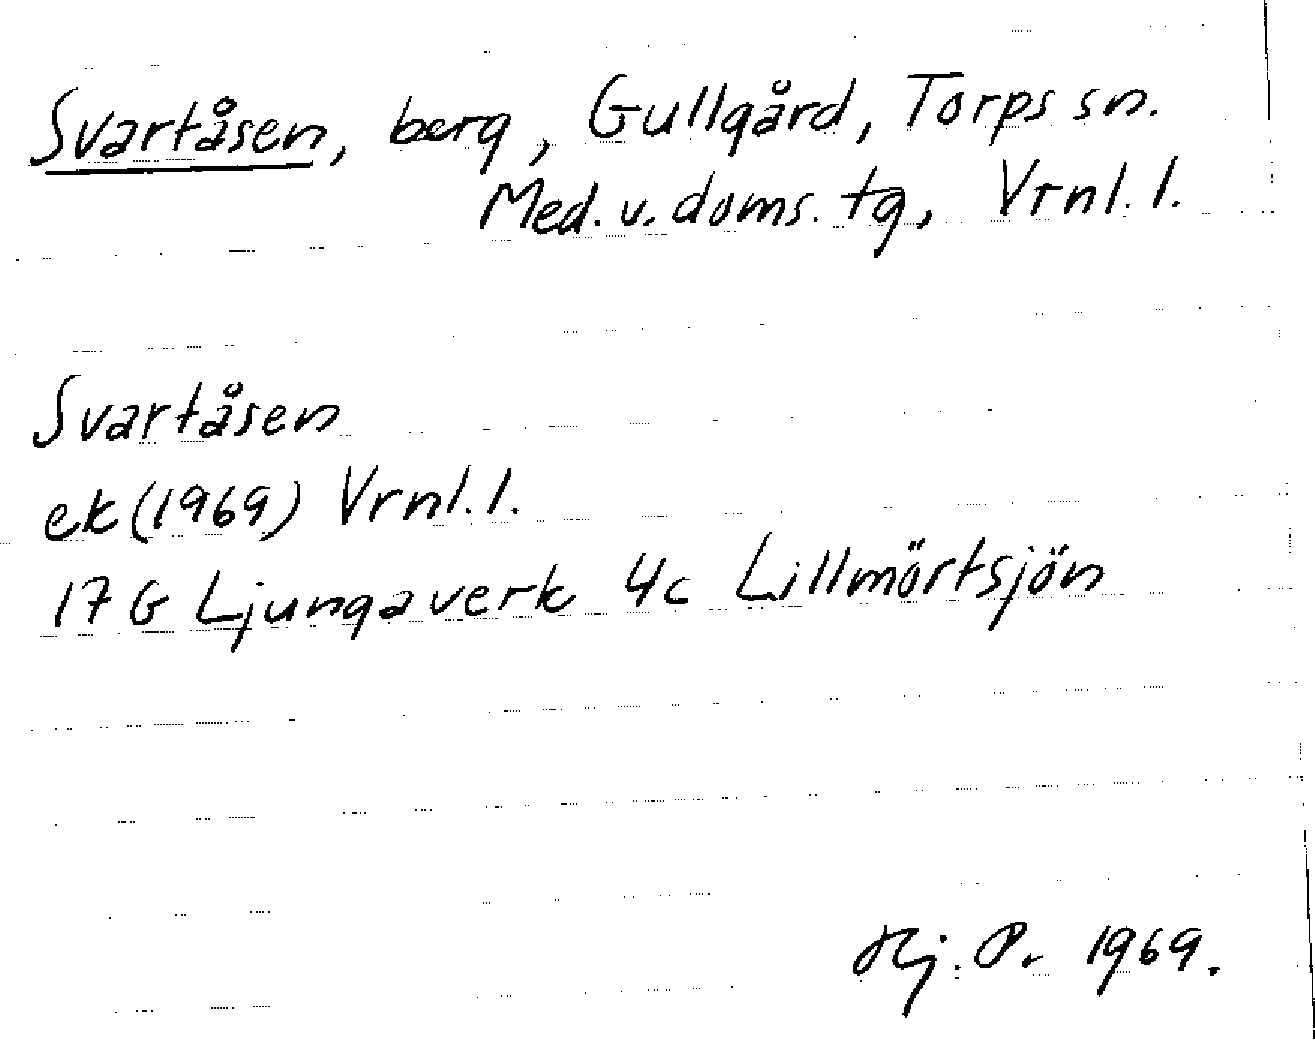 Svartåsen, berg, Gullgård, Torps sn.
Med. v. doms. tg, Vrnl. l.
Svartåsen
ek (1969) Vrnl. l.
17 G Ljungaverk 4c Lillmörtsjön
Hj. P. 1969.